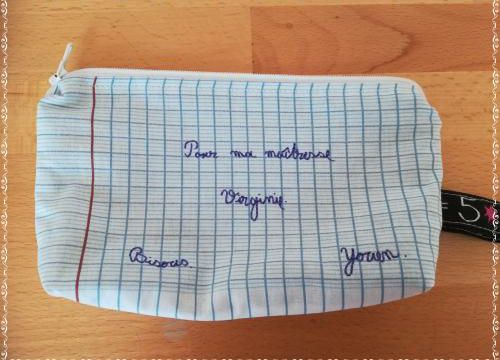 Pour ma maîtresse
Virginie.
Bisous.
Youen.
= 5